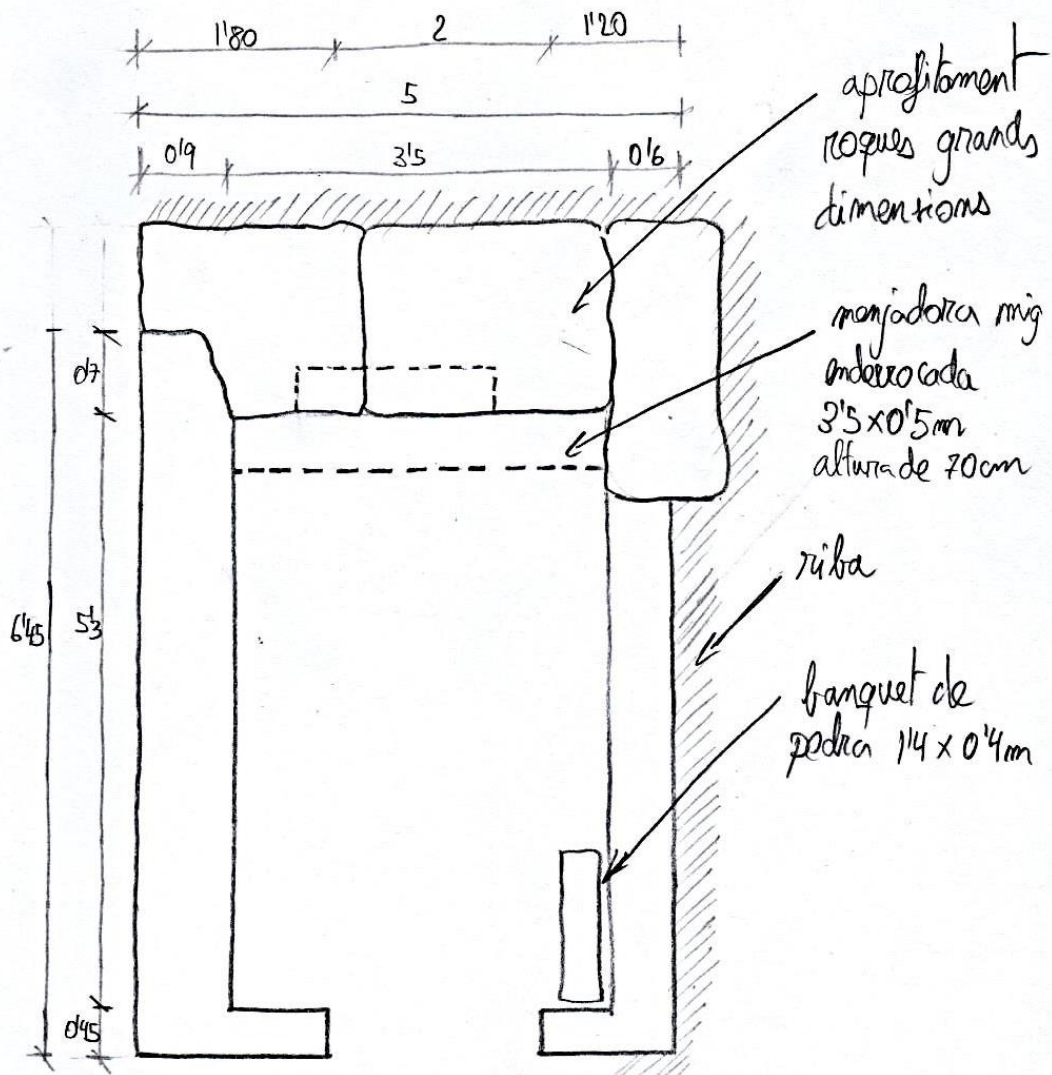 1'80 2 1'20
5
0'9 3'5 0'6
aprofitament
roques grands
dimentions
menjadora mig
enderrocada
3'5x0'5m
altura de 70cm
riba
banquet de
pedra 1'4 x 0'4m
0'7
6'45 5'3
0'45